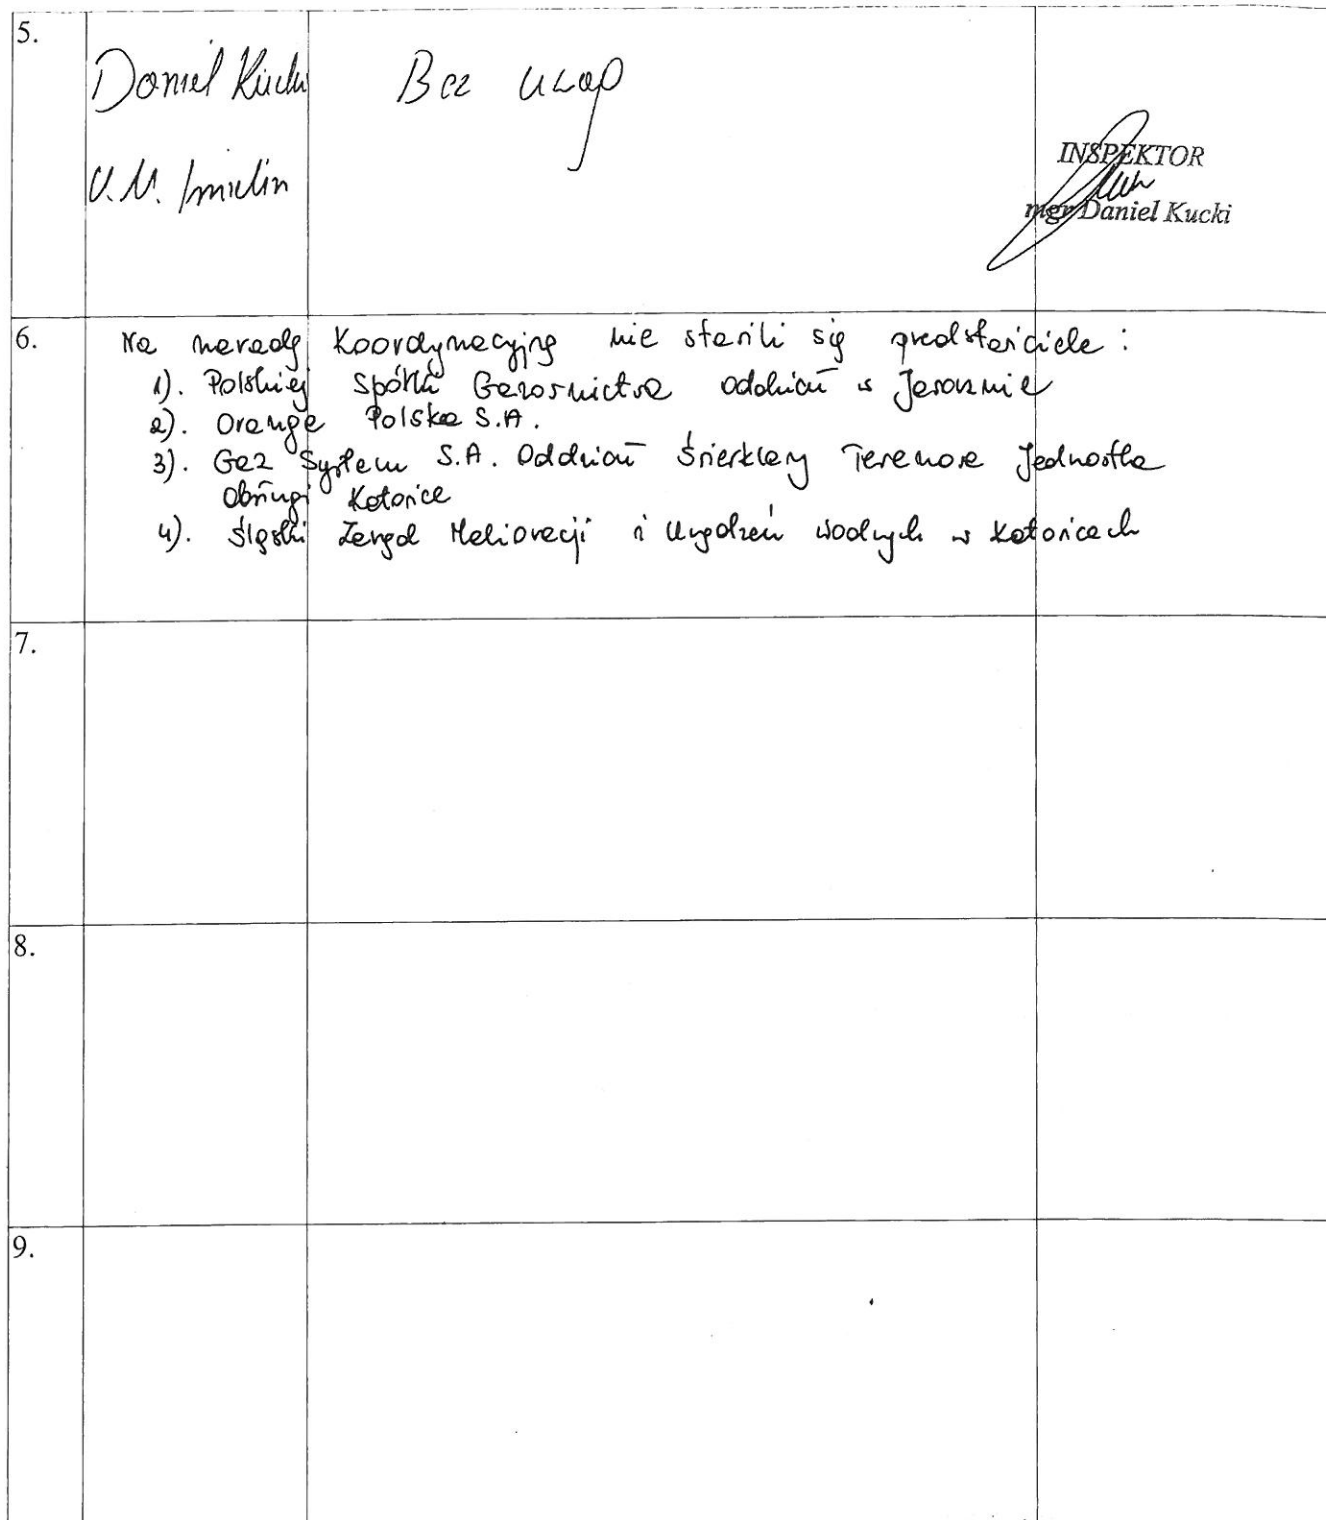 5.
Daniel Kucki Bez uwag
U.M. Imielin
INSPEKTOR
mgr Daniel Kucki
6. Na naradę koordynacyjną nie stawili się przedstawiciele :
1). Polskiej Spółki Gazownictwa oddział w Jaworznie
2). Orange Polska S.A.
3). Gaz System S.A. Oddział Świerklany Terenowa Jednostka
obsługi Katowice
4). Śląski Zarząd Melioracji i Urządzeń wodnych w Katowicach
7.
8.
9.